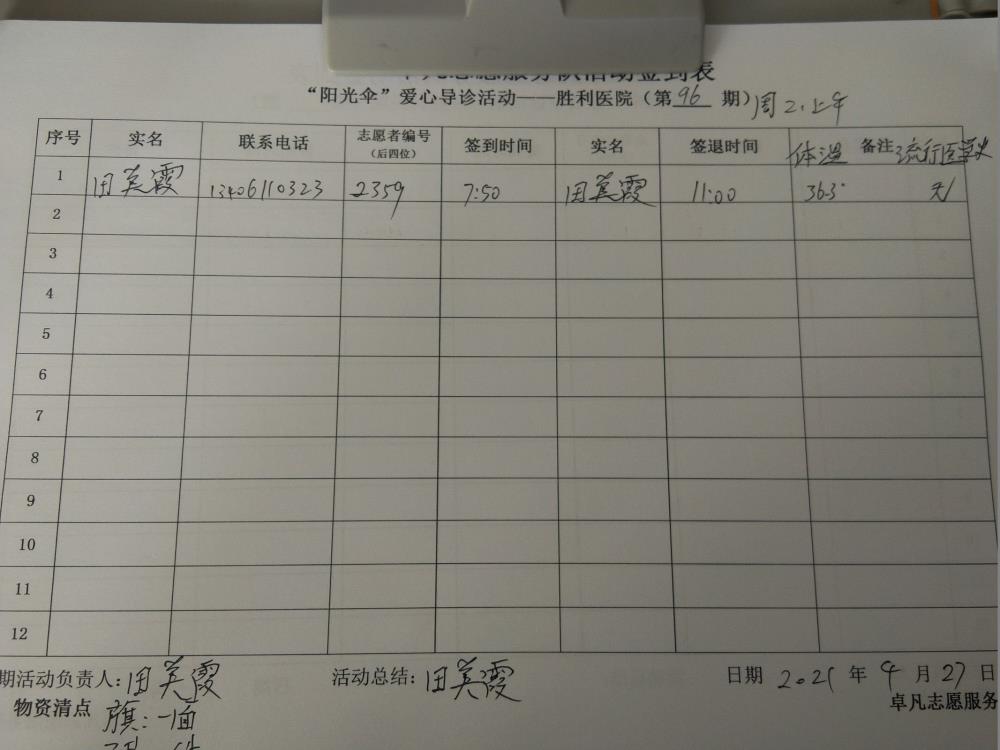 卓凡志愿服务队活动签到表
“阳光伞”爱心导诊活动——胜利医院（第96期）周2.上午
序号 实名 联系电话 志愿者编号（后四位） 签到时间 实名 签退时间 体温 备注 流行医学史
1 田美霞 13406110323 2359 7:50 田美霞 11:00 36.3° 无
2
3
4
5
6
7
8
9
10
11
12
期活动负责人：田美霞 活动总结：田美霞 日期 2021 年 4 月 27 日
物资清点 卓凡志愿服务
旗：一面